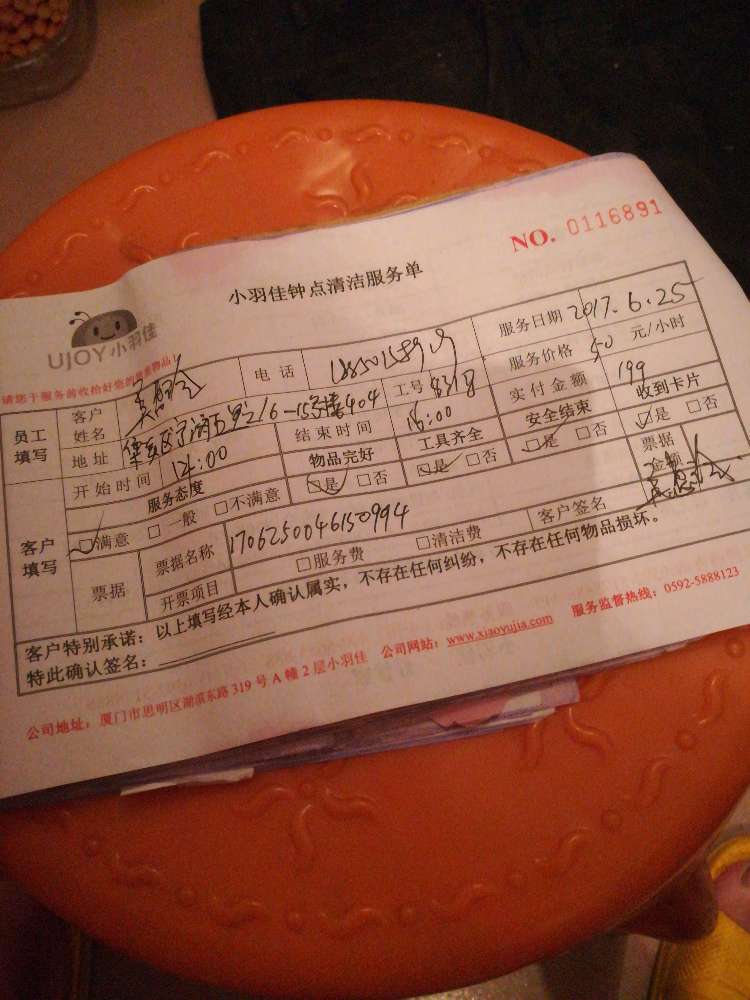 NO. 0116891
小羽佳钟点清洁服务单
UJOY小羽佳
服务日期 2017.6.25
员工填写 客户姓名 电话 服务价格 50 元/小时
地址 工号 实付金额 199 收到卡片
开始时间 14:00 结束时间 18:00 安全结束 □是 □否
服务态度 物品完好 □是 □否 工具齐全 □是 □否
客户填写 □满意 □一般 □不满意 票据金额
票据 票据名称 1706250046150994
开票项目 □服务费 □清洁费 客户签名
客户特别承诺：以上填写经本人确认属实，不存在任何纠纷，不存在任何物品损坏。
特此确认签名：
公司地址：厦门市思明区湖滨东路319号A幢2层小羽佳 公司网站：www.xiaoyujia.com 服务监督热线：0592-5888123